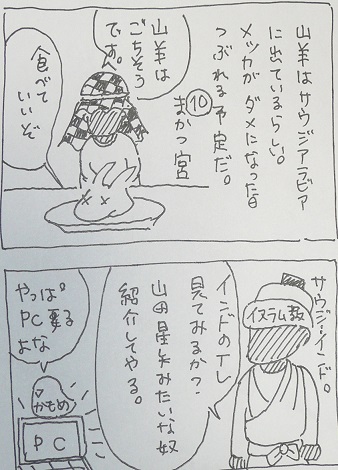 山羊はサウジアラビア
に出ているらしい。
メッカがダメになった日
つぶれる予定だ。
⑩
まかつ宮
山羊は
ごちそう
です。
食べて
いいぞ
サウジ・インド。
イスラム教
インドのTレ
見てみるか?
山田星矢みたいな奴
紹介してやる。
やっぱ
PC要る
よな
かもめ
PC